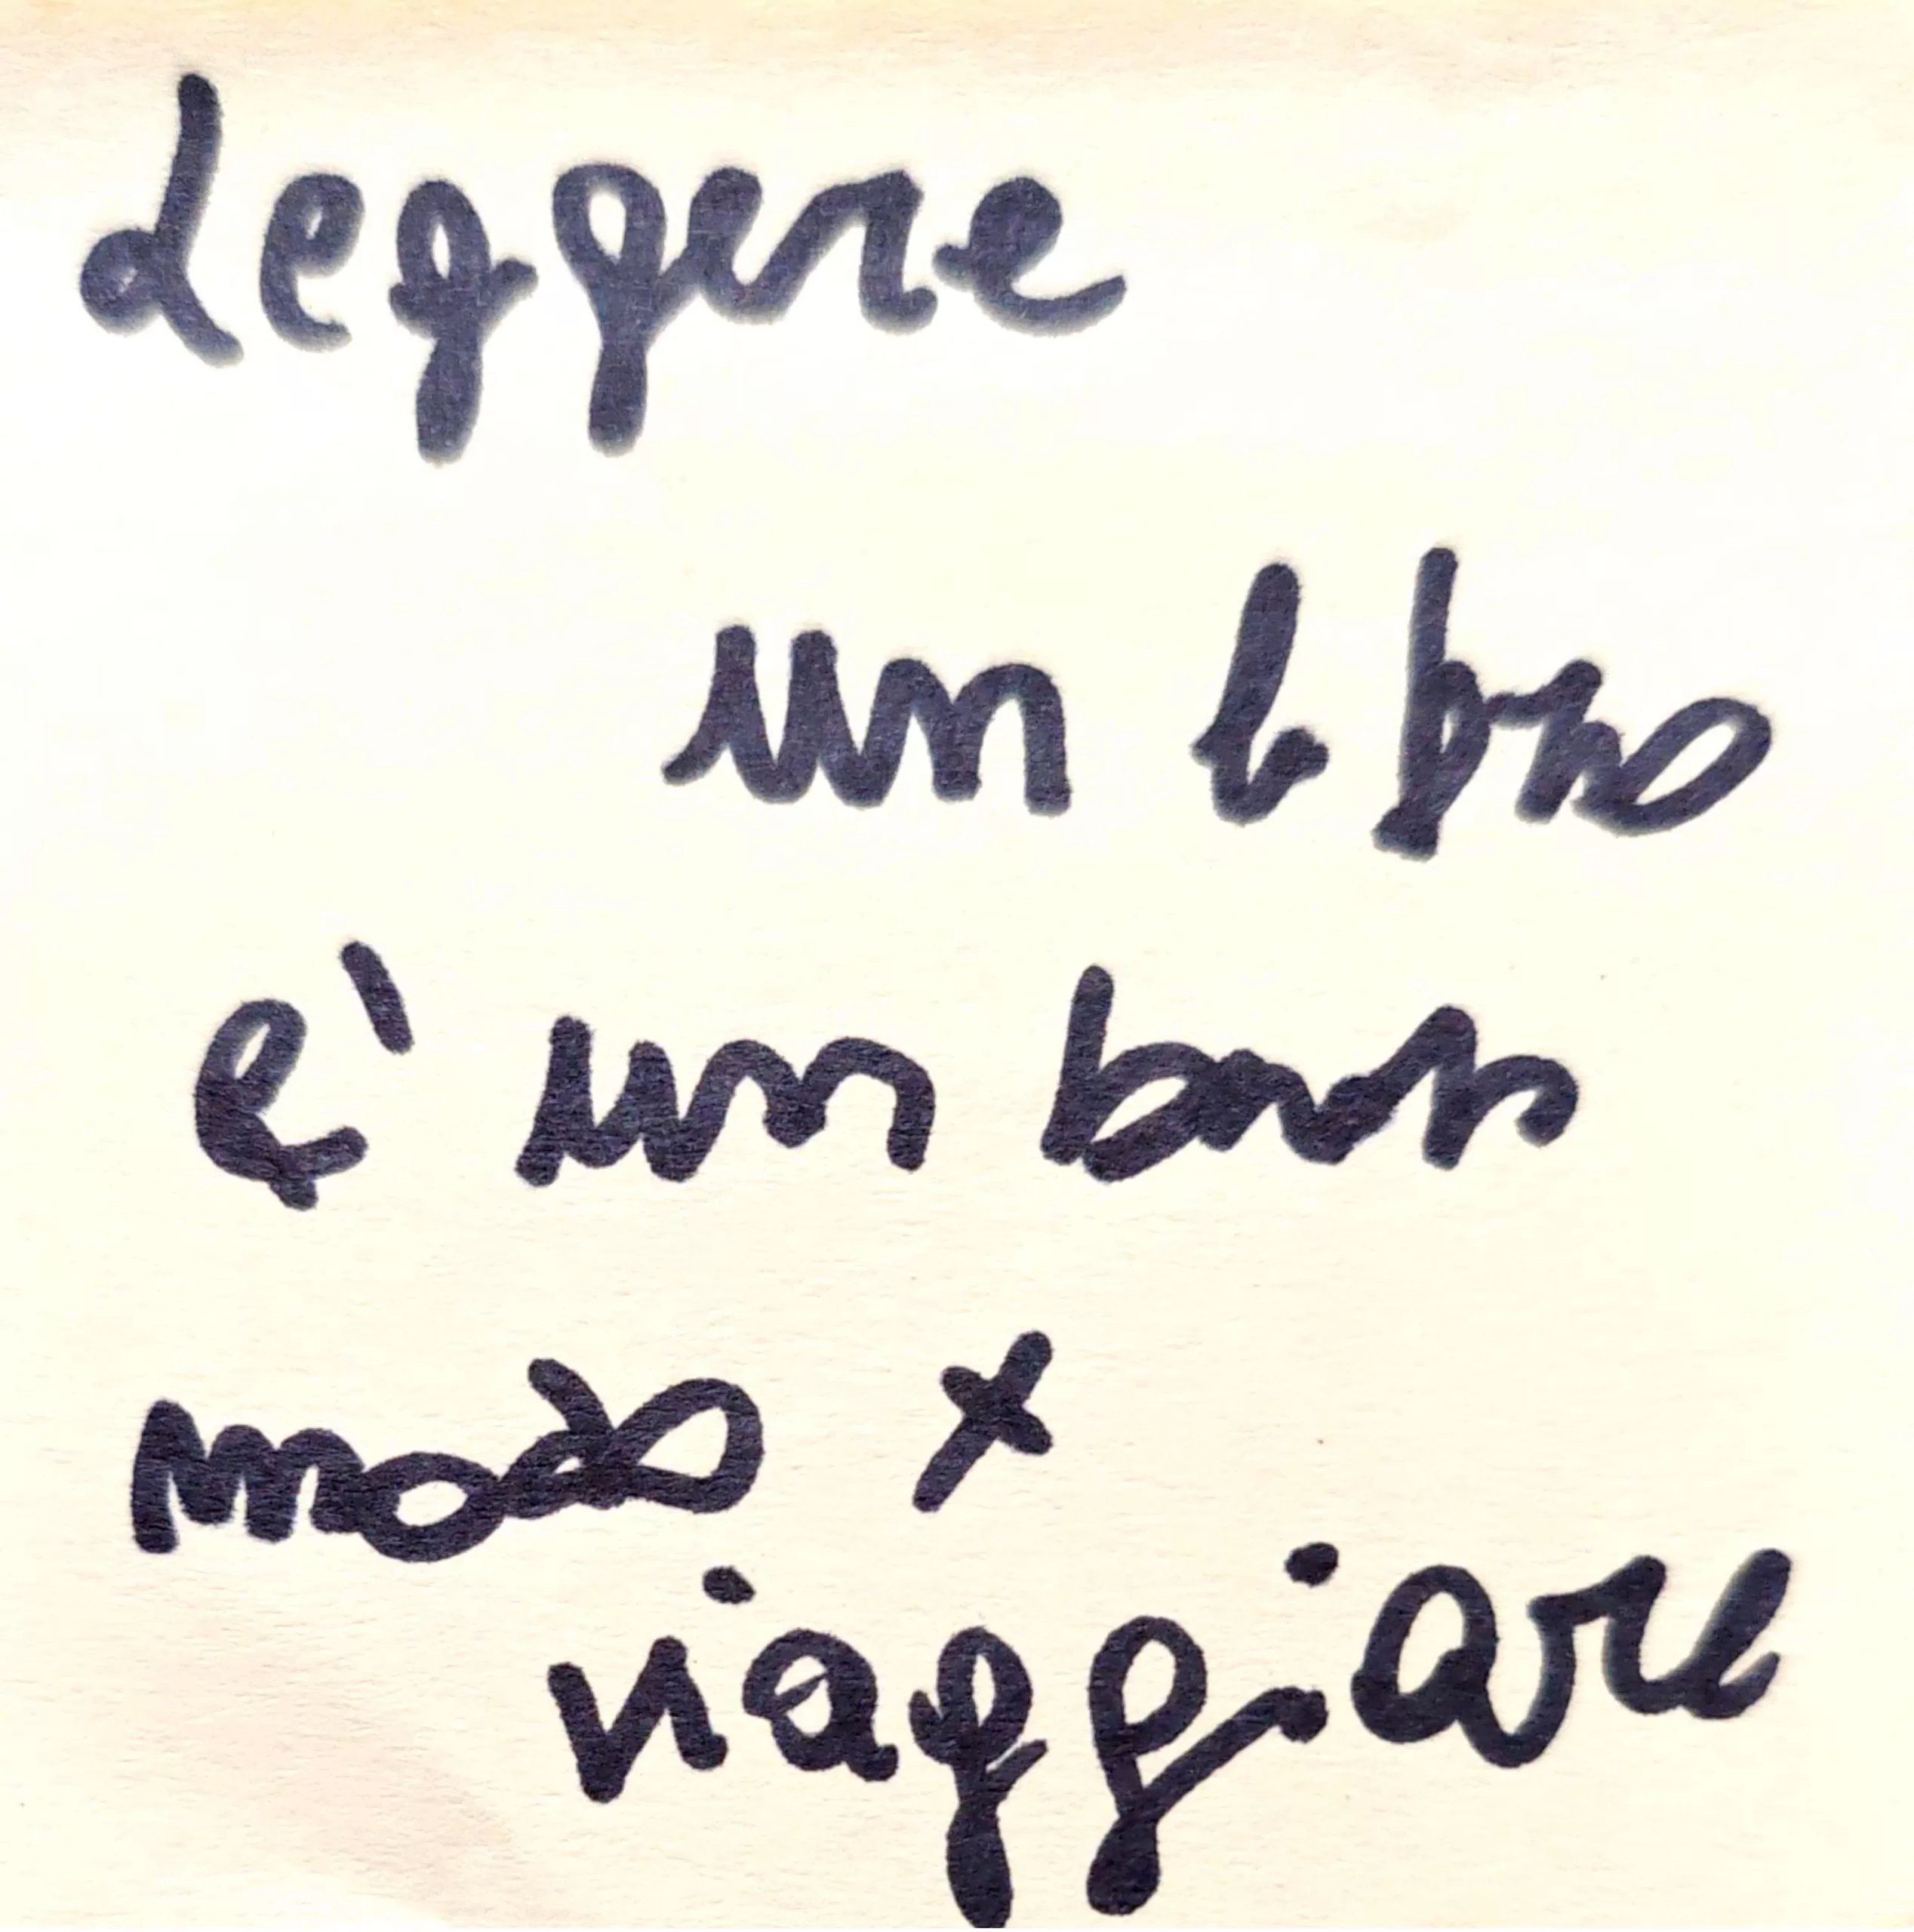 Leggere
un libro
e' un buon
modo x
viaggiare